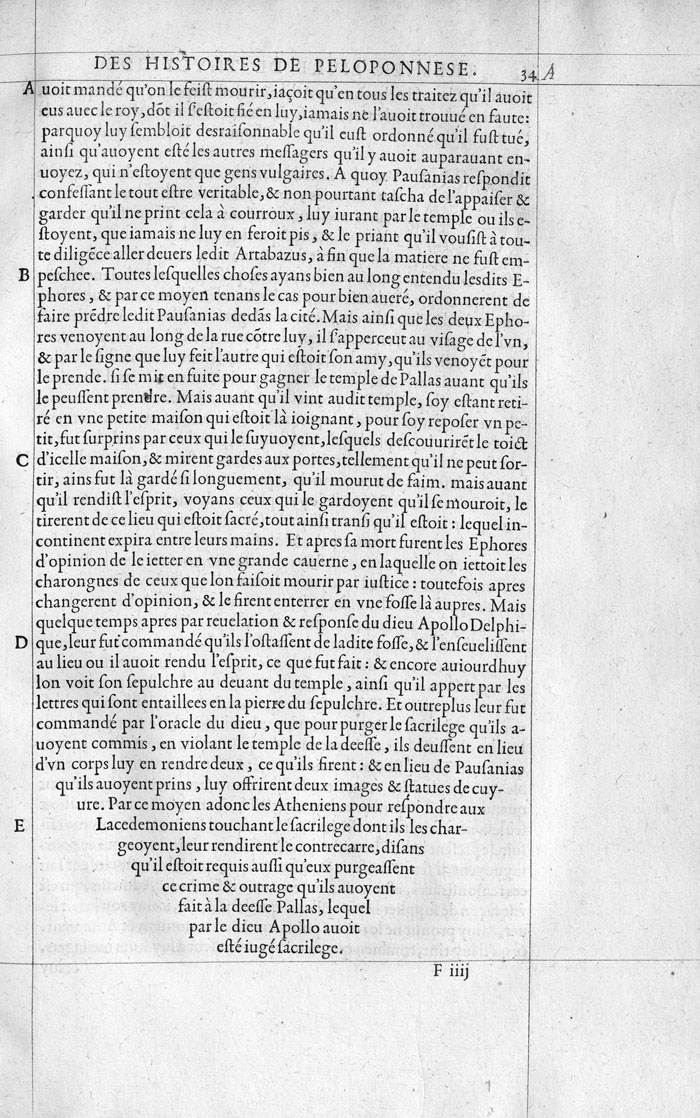 DES HISTOIRES DE PELOPONNESE. 34 A
A uoit mandé qu'on le feist mourir, iaçoit qu'en tous les traitez qu'il auoit
eus auec le roy, dõt il s'estoit fié en luy, iamais ne l'auoit trouué en faute:
parquoy luy sembloit desraisonnable qu'il eust ordonné qu'il fust tué,
ainsi qu'auoyent esté les autres messagers qu'il y auoit auparauant en-
uoyez, qui n'estoyent que gens vulgaires. A quoy Pausanias respondit
confessant le tout estre veritable, & non pourtant tascha de l'appaiser &
garder qu'il ne print cela à courroux, luy iurant par le temple ou ils e-
stoyent, que iamais ne luy en feroit pis, & le priant qu'il vousist à tou-
te diligẽce aller deuers ledit Artabazus, à fin que la matiere ne fust em-
B peschee. Toutes lesquelles choses ayans bien au long entendu lesdits E-
phores, & par ce moyen tenans le cas pour bien aueré, ordonnerent de
faire prẽdre ledit Pausanias dedãs la cité. Mais ainsi que les deux Epho-
res venoyent au long de la rue cõtre luy, il s'apperceut au visage de l'vn,
& par le signe que luy feit l'autre qui estoit son amy, qu'ils venoyẽt pour
le prende. si se mit en fuite pour gagner le temple de Pallas auant qu'ils
le peussent prendre. Mais auant qu'il vint audit temple, soy estant reti-
ré en vne petite maison qui estoit là ioignant, pour soy reposer vn pe-
tit, fut surprins par ceux qui le suyuoyent, lesquels descouurirẽt le toict
C d'icelle maison, & mirent gardes aux portes, tellement qu'il ne peut sor-
tir, ains fut là gardé si longuement, qu'il mourut de faim. mais auant
qu'il rendist l'esprit, voyans ceux qui le gardoyent qu'il se mouroit, le
tirerent de ce lieu qui estoit sacré, tout ainsi transi qu'il estoit: lequel in-
continent expira entre leurs mains. Et apres sa mort furent les Ephores
d'opinion de le ietter en vne grande cauerne, en laquelle on iettoit les
charongnes de ceux que lon faisoit mourir par iustice: toutefois apres
changerent d'opinion, & le firent enterrer en vne fosse là aupres. Mais
quelque temps apres par reuelation & response du dieu Apollo Delphi-
D que, leur fut commandé qu'ils l'ostassent de ladite fosse, & l'enseuelissent
au lieu ou il auoit rendu l'esprit, ce que fut fait: & encore auiourdhuy
lon voit son sepulchre au deuant du temple, ainsi qu'il appert par les
lettres qui sont entaillees en la pierre du sepulchre. Et outreplus leur fut
commandé par l'oracle du dieu, que pour purger le sacrilege qu'ils a-
uoyent commis, en violant le temple de la deesse, ils deussent en lieu
d'vn corps luy en rendre deux, ce qu'ils firent: & en lieu de Pausanias
qu'ils auoyent prins, luy offrirent deux images & statues de cuy-
ure. Par ce moyen adonc les Atheniens pour respondre aux
E Lacedemoniens touchant le sacrilege dont ils les char-
geoyent, leur rendirent le contrecarre, disans
qu'il estoit requis aussi qu'eux purgeassent
ce crime & outrage qu'ils auoyent
fait à la deesse Pallas, lequel
par le dieu Apollo auoit
esté iugé sacrilege.
F iiij